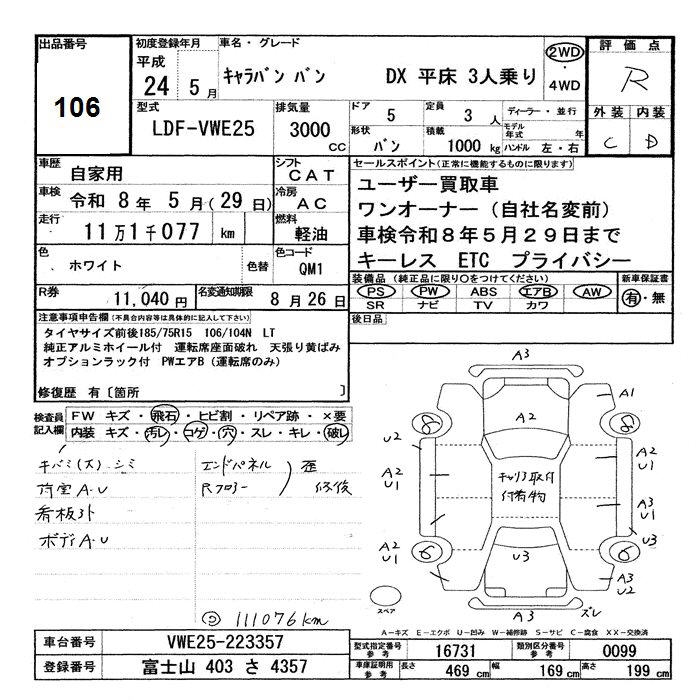 出品番号
106
初度登録年月
平成
24 5月
車名・グレード
キャラバン バン DX 平床 3人乗り
2WD
・
4WD
評価点
R
外装 内装
C D
型式
LDF-VWE25
排気量
3000 cc
ドア 5
定員 3 人
ディーラー・並行
形状 バン
積載 1000 kg
モデル年式 年
ハンドル 左・右
車歴 自家用
シフト CAT
車検 令和 8年 5月(29日)
冷房 AC
走行 11万1千077 km
燃料 軽油
色 ホワイト 色替
色コード QM1
R券 11,040円
名変通知期限 8月26日
セールスポイント(正常に機能するものに限ります)
ユーザー買取車
ワンオーナー(自社名変前)
車検令和8年5月29日まで
キーレス ETC プライバシー
装備品(純正品に限り〇をつけてください)
PS PW ABS エアB AW
SR ナビ TV カワ
新車保証書
有・無
後日品
注意事項申告欄(不具合内容等は具体的に記入して下さい)
タイヤサイズ前後185/75R15 106/104N LT
純正アルミホイール付 運転席座面破れ 天張り黄ばみ
オプションラック付 PWエアB(運転席のみ)
修復歴 有〔箇所 〕
検査員記入欄
FW キズ・飛石・ヒビ割・リペア跡・×要
内装 キズ・汚レ・コゲ・穴・スレ・キレ・破レ
キバミ(大)・シミ
荷室A・U
看板外
ボディA・U
エンドパネル
Rフロアー
歪
修後
111076km
A3
A1
8
8
A2
U2
A2
U1
A2
U1
キャリア取付
付着物
A3
U1
U3
A2
U1
6
6
U3
A3
U2
A3
ズレ
スペア
A-キズ E-エクボ U-凹み W-補修跡 S-サビ C-腐食 XX-交換済
車台番号 VWE25-223357
登録番号 富士山 403 さ 4357
型式指定番号参考 16731
類別区分番号参考 0099
車庫証明用参考 長さ 469 cm 幅 169 cm 高さ 199 cm